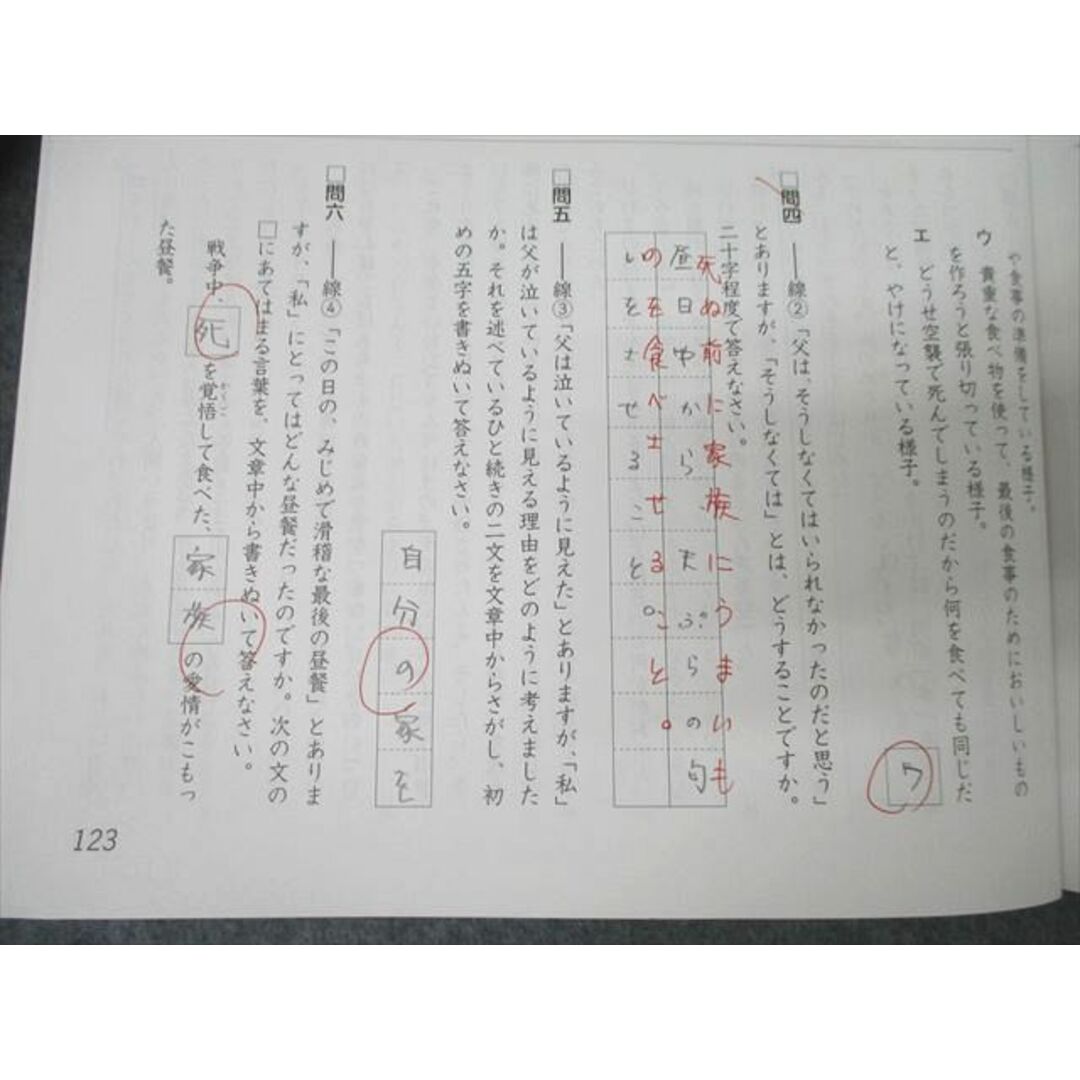 や食事の準備をしている様子。
ウ 貴重な食べ物を使って、最後の食事のためにおいしいもの
を作ろうと張り切っている様子。
エ どうせ空襲で死んでしまうのだから何を食べても同じだ
と、やけになっている様子。
ウ
□問四 ――線②「父は、そうしなくてはいられなかったのだと思う」
とありますが、「そうしなくては」とは、どうすることですか。
二十字程度で答えなさい。
死ぬ前に家族にうまいも
のを食べさせること。
昼日中から、天ぷらの匂
いをさせること。
□問五 ――線③「父は泣いているように見えた」とありますが、「私」
は父が泣いているように見える理由をどのように考えました
か。それを述べているひと続きの二文を文章中からさがし、初
めの五字を書きぬいて答えなさい。
自分の家を
□問六 ――線④「この日の、みじめで滑稽な最後の昼餐」とありま
すが、「私」にとってはどんな昼餐だったのですか。次の文の
□にあてはまる言葉を、文章中から書きぬいて答えなさい。
戦争中、死を覚悟して食べた、家族の愛情がこもっ
かくご
た昼餐。
123